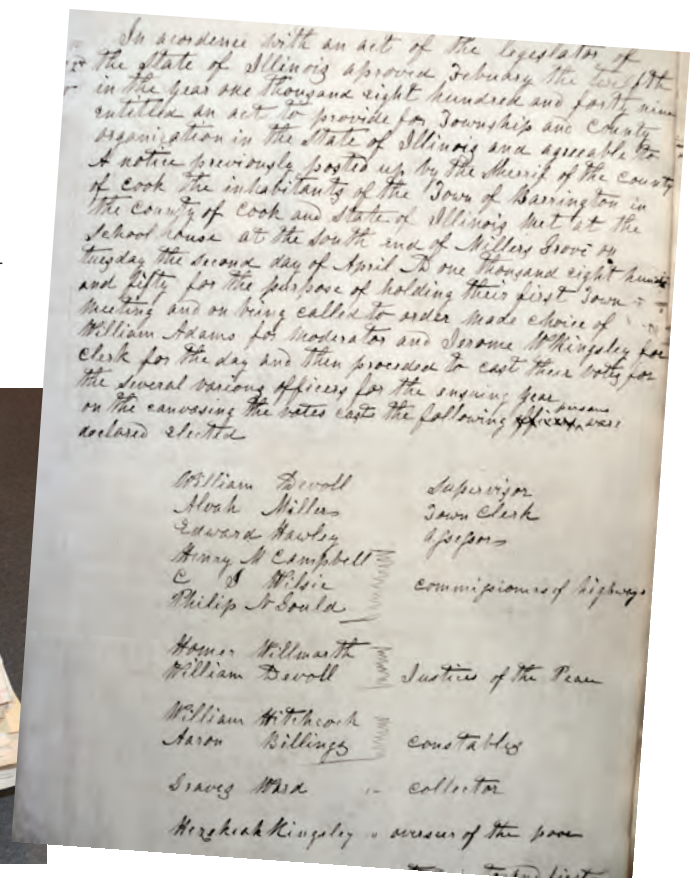 In acordence with an act of the legeslator of
the State of Illinois aproved Febuary the twelfth
in the year one thousand eight hundred and forty nine
entitled an act to provide for Township and County
organication in the State of Illinois and agreeable to
A notice previously posted up by the Sherrif of the county
of cook the inhabitants of the Town of Barrington in
the county of Cook and State of Illinois met at the
School house at the South end of Millers Grove on
tuesday the second day of April AD one thousand eight
and fifty for the purpose of holding their first Town
meeting and on being called to order made choice of
William Adams for moderator and Jerome W Kingsley for
clerk for the day and then proceded to cast their votes for
the several various officers for the ensuing year
on the canvasing the votes cast the following persons ware
declared elected
William Devoll Supervisor
Alvah Millers Town Clerk
Edward Hawley Assessors
Henry M Campbell
C Hilsie commissioners of highways
Philip N Gould
Homer Willmarth
William Devoll Justices of the Peace
William Hitchcock
Aaron Billings constables
Ward collector
Hezekiah Kingsley overseer of the poor
first